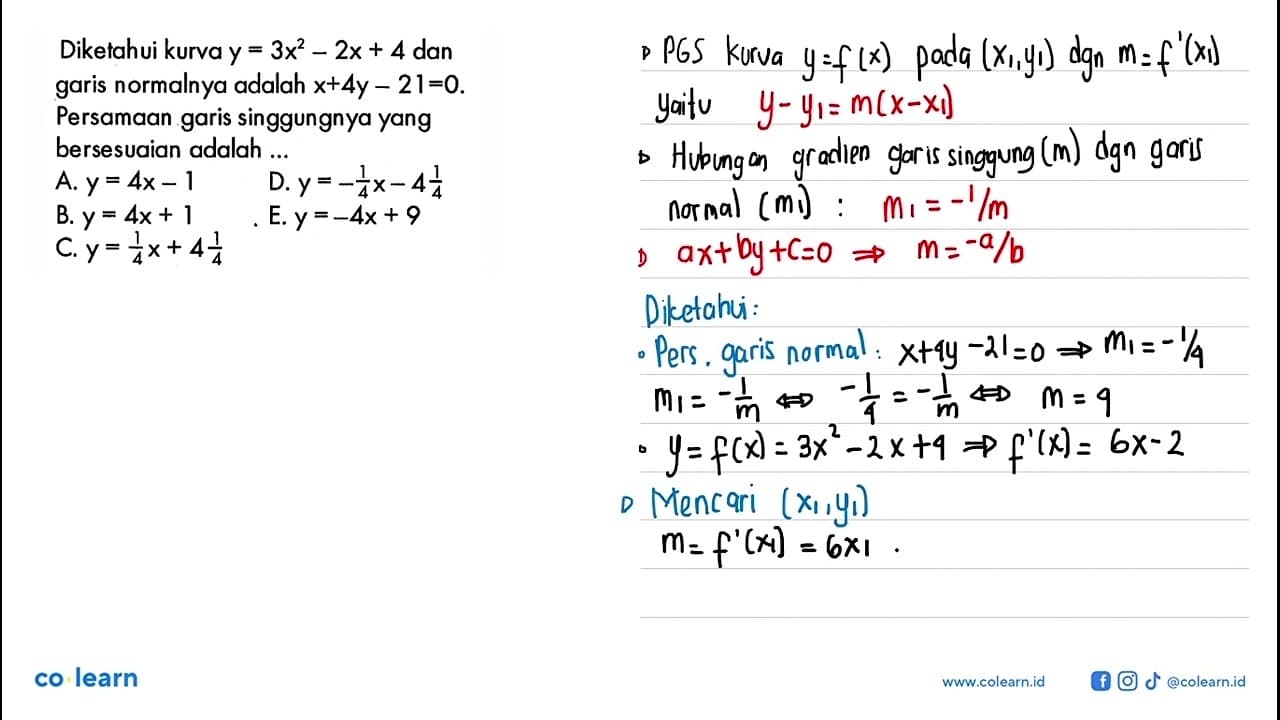 Diketahui kurva y = 3x² – 2x + 4 dan
garis normalnya adalah x+4y – 21=0.
Persamaan garis singgungnya yang
bersesuaian adalah ...
A. y = 4x – 1 D. y = –1/4 x – 4 1/4
B. y = 4x + 1 E. y = –4x + 9
C. y = 1/4 x + 4 1/4
PGS kurva y=f(x) pada (x₁,y₁) dgn m=f'(x₁)
yaitu y-y₁=m(x-x₁)
Hubungan gradien garis singgung (m) dgn garis
normal (m₁) : m₁ = -1/m
ax+by+c=0 ⇒ m=-a/b
Diketahui:
• Pers. garis normal: x+4y-21=0 ⇒ m₁=-1/4
m₁ = -1/m ⇔ -1/4 = -1/m ⇔ m = 4
• y=f(x)=3x²-2x+4 ⇒ f'(x)= 6x-2
Mencari (x₁,y₁)
m=f'(x₁) = 6x₁ .
co learn
www.colearn.id @colearn.id